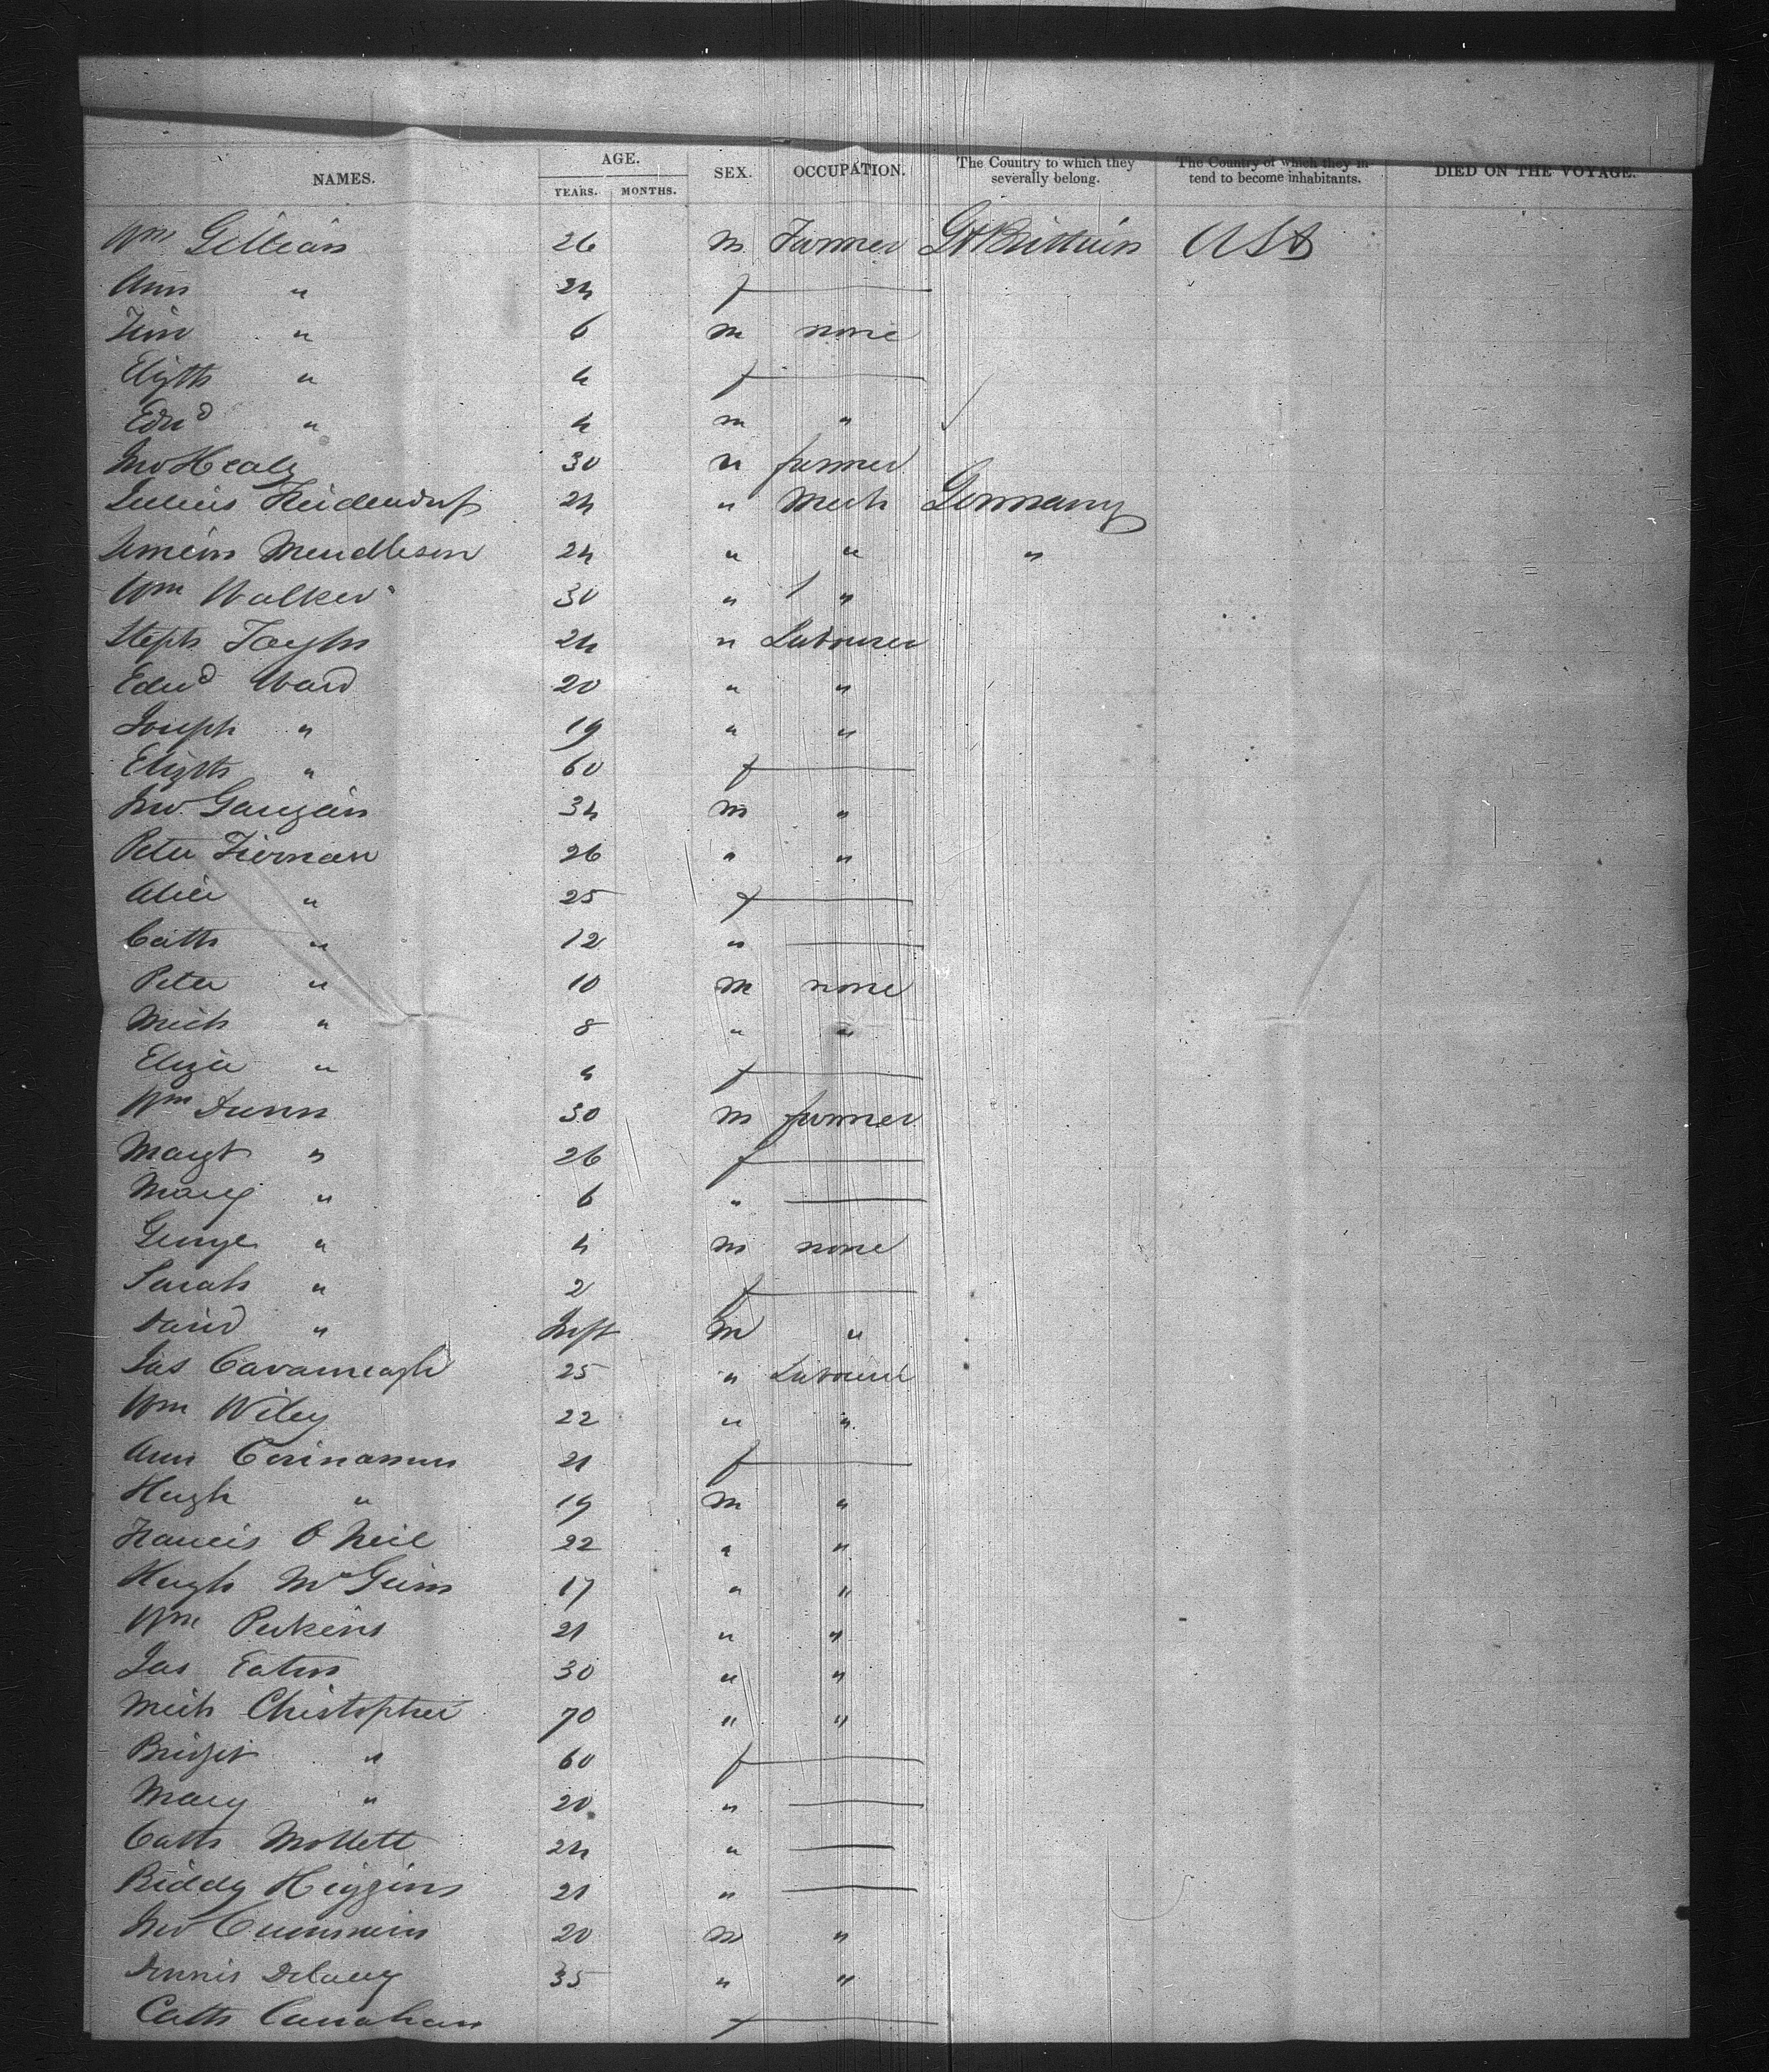 NAMES. AGE. YEARS. MONTHS. SEX. OCCUPATION. The Country to which they severally belong. The Country of which they intend to become inhabitants. DIED ON THE VOYAGE.
Wm Gillian 26 m Farmer Gt Brittain USA
Ann " 24 f
" 6 m none
Elizth " 4 f
Edwd " 4 m "
Jno Healy 30 " farmer
Julius Heidendorf 24 " Mech Germany
Simeon Mendleson 24 " " "
Wm Walker 30 " "
Steph 24 " Labourer
Edwd Ward 20 " "
Joseph " 19 " "
Elizth " 60 f
Jno 34 m "
Peter Tiernan 26 " "
Alice " 25 f
Cath " 12 "
Peter " 10 m none
Mich " 8 " "
Eliza " 4 f
Wm Dunn 30 m farmer
Margt " 26 f
Mary " 6 "
George " 4 m none
Sarah " 2 f
David " Inft m "
Jas Cavaneagh 25 " Labourer
Wm Wiley 22 " "
Ann 21 f
Hugh " 19 m "
Francis O Neil 22 " "
Hugh McGuin 17 " "
Wm Perkins 21 " "
Jas Eaton 30 " "
Mich Christopher 70 " "
Bridget " 60 f
Mary " 20 "
Cath Mollett 24 "
Biddy Higgins 21 "
Jno Cummins 20 m "
Dennis Delany 35 " "
Cath Canahan f